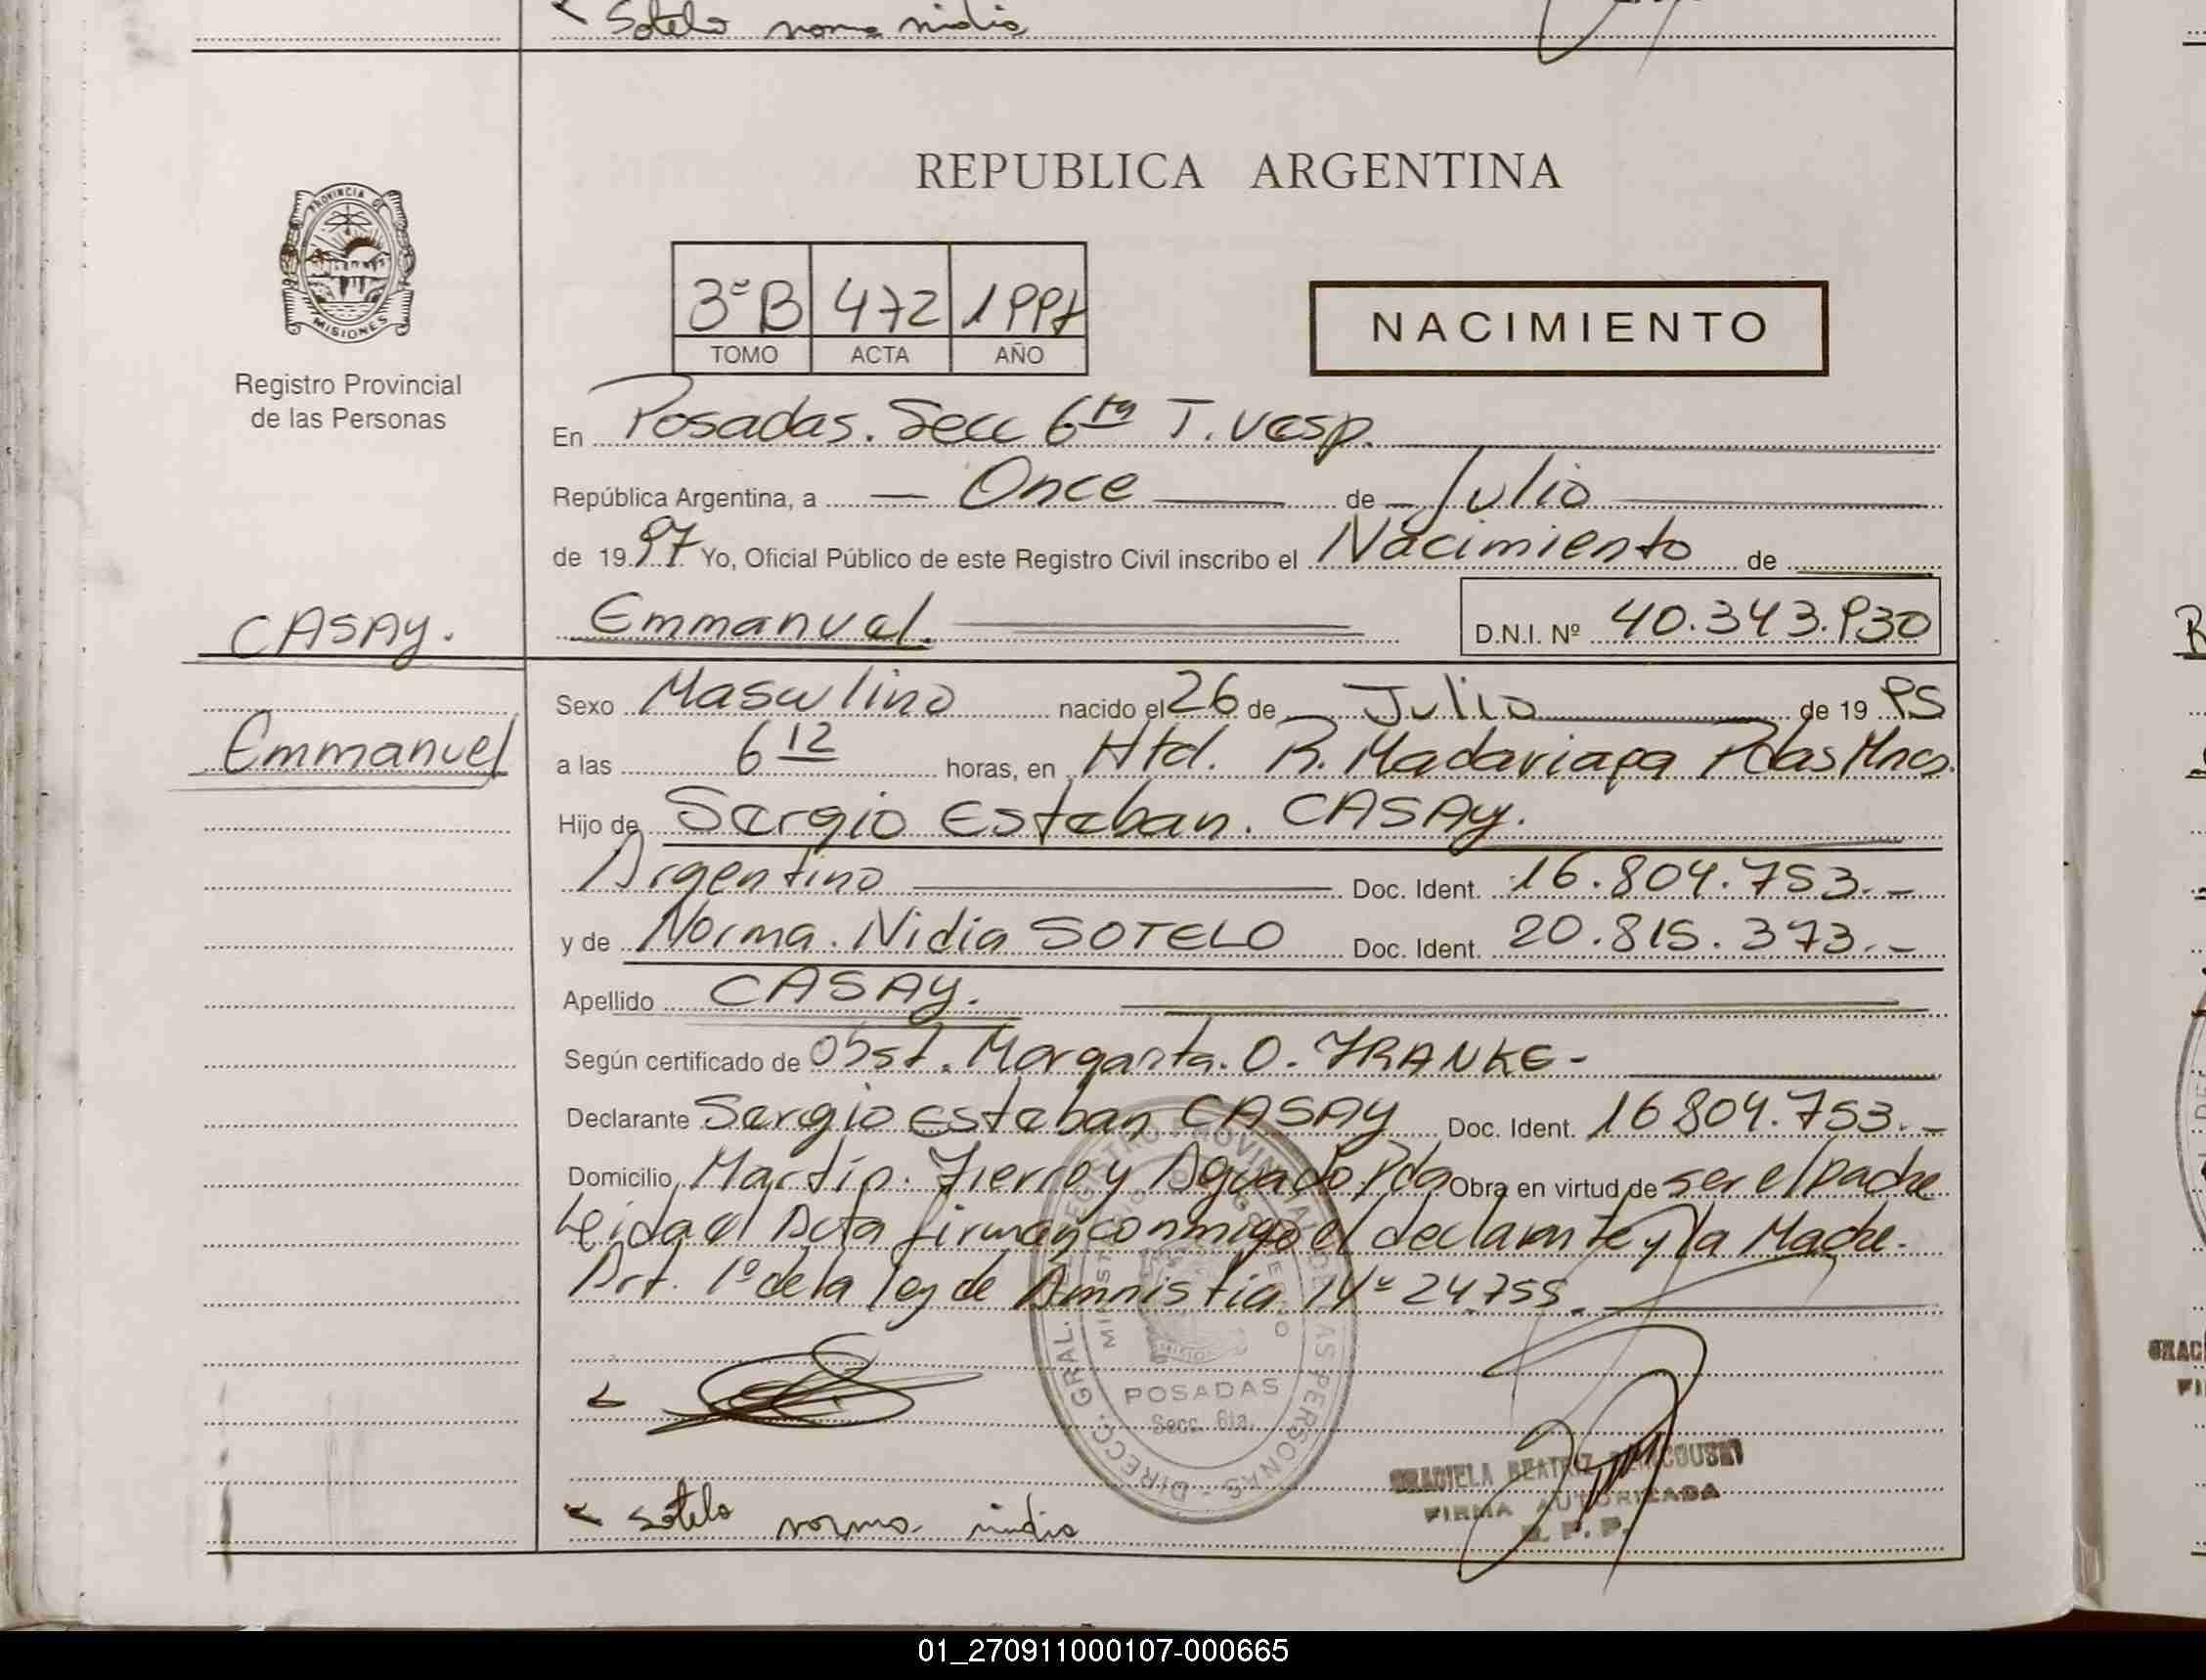 Sotelo norma nidia
PROVINCIA DE
MISIONES
Registro Provincial
de las Personas
REPUBLICA ARGENTINA
3ºB 472 1997
TOMO ACTA AÑO
NACIMIENTO
En Posadas. Secc 6ta T. Vesp.
República Argentina, a Once de Julio
de 1997 Yo, Oficial Público de este Registro Civil inscribo el Nacimiento de
CASAY. Emmanuel. D.N.I. Nº 40.343.930
Sexo Masculino nacido el 26 de Julio de 1995
Emmanuel
a las 6 12 horas, en Htal. R. Madariaga Pdas Mnes.
Hijo de Sergio Esteban. CASAY.
Argentino Doc. Ident. 16.804.753.-
y de Norma. Nidia SOTELO Doc. Ident. 20.815.373.-
Apellido CASAY.
Según certificado de Obst. Margarita. O. FRANKE-
Declarante Sergio Esteban CASAY Doc. Ident. 16804.753.-
Domicilio Martín. Fierro y Aguado Pda Obra en virtud de ser el padre
Leida el Acta firman conmigo el declarante y la Madre.
Art. 1º de la ley de Amnistia Nº 24.755.
DIRECC. GRAL. REGISTRO PROVINCIAL DE LAS PERSONAS
POSADAS
Secc. 6ta.
GRACIELA BEATRIZ
FIRMA AUTORIZADA
R. P. P.
sotelo norma nidia
01_270911000107-000665